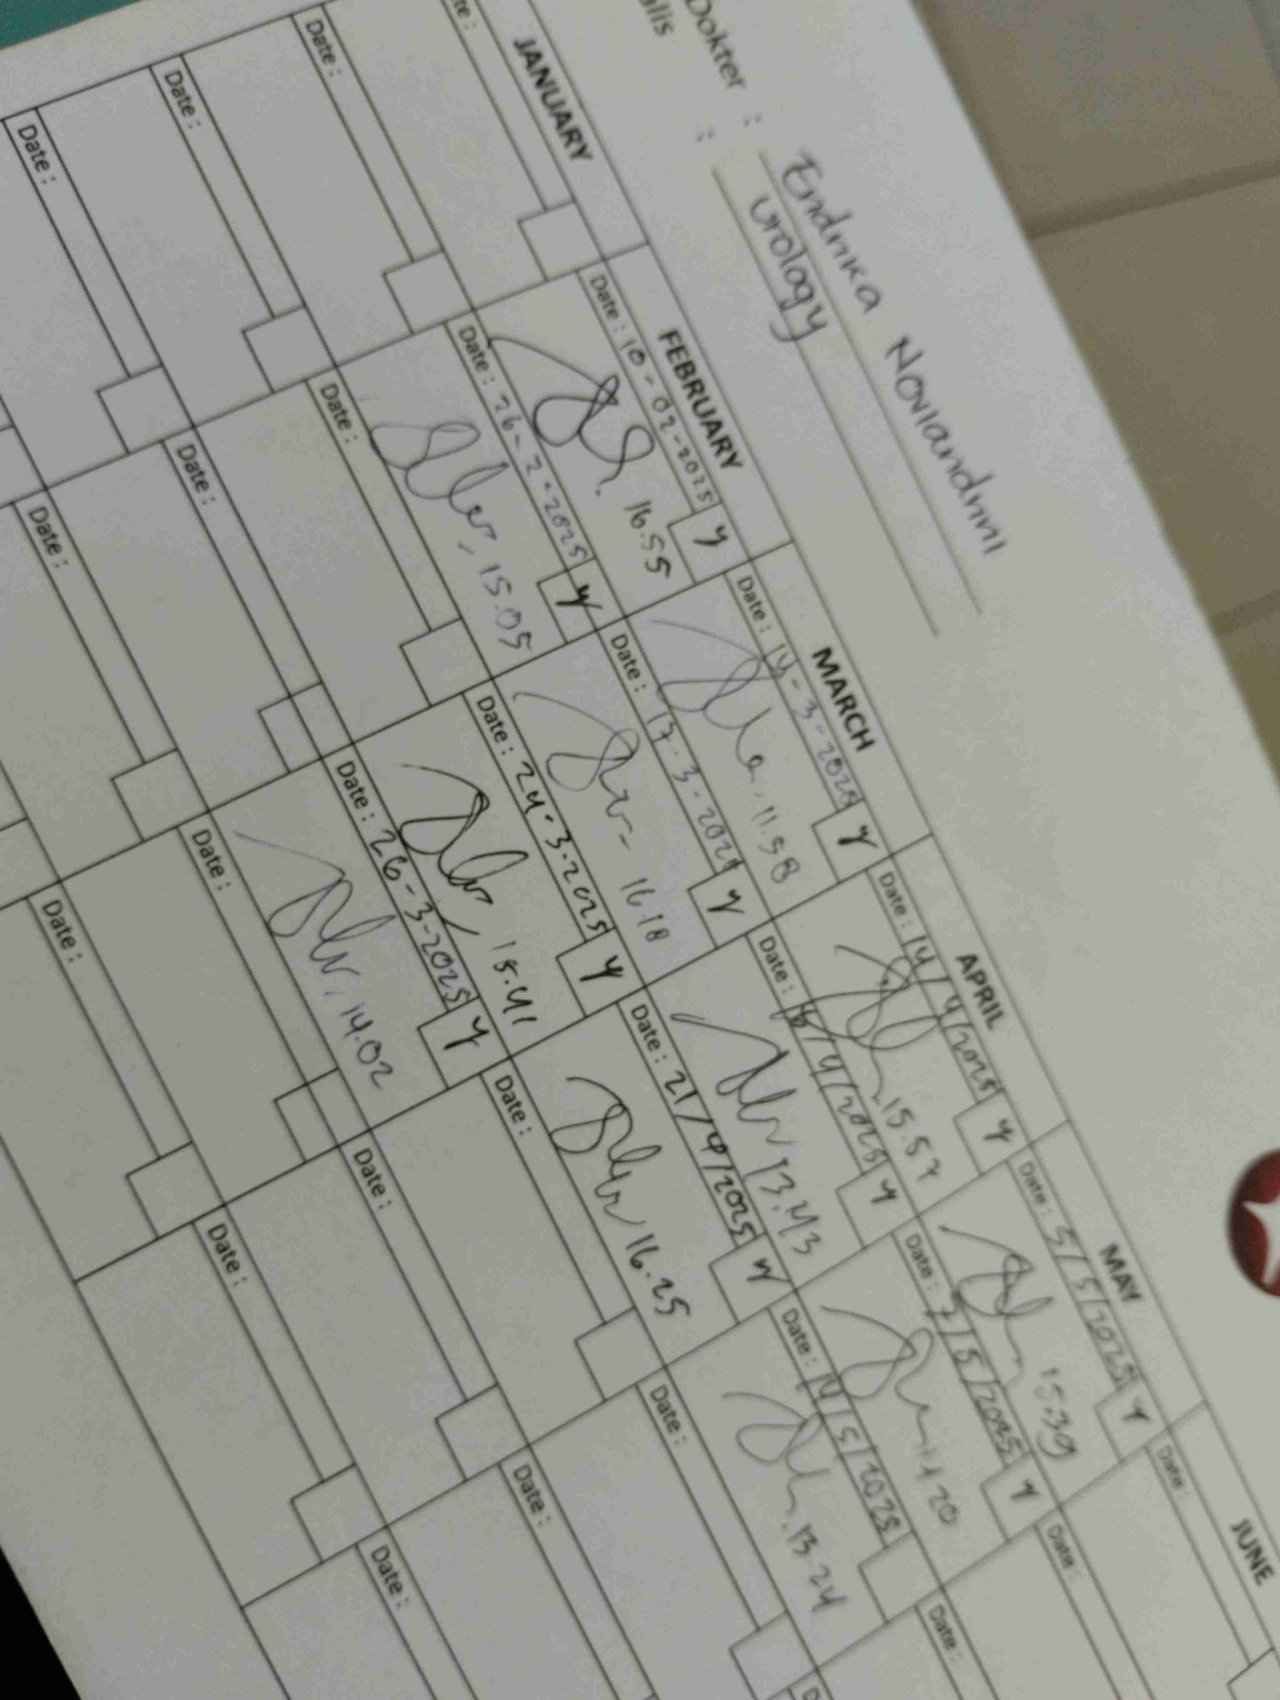 Dokter : Endrika Noviandrini
alis : Urology
JANUARY
FEBRUARY
MARCH
APRIL
MAY
JUNE
te :
Date :
Date :
Date :
Date : 10-02-2025 y
16.55
Date : 26-2-2025 y
15.05
Date :
Date :
Date :
Date : 14-3-2025 y
11.58
Date : 17-3-2025 y
16.18
Date : 24-3-2025 y
15.41
Date : 26-3-2025 y
14.02
Date :
Date :
Date : 14/4/2025 y
15.57
Date : 16/4/2025 y
13.43
Date : 21/4/2025 y
16.25
Date :
Date :
Date :
Date : 5/5/2025 y
15:39
Date : 7/5/2025 y
20
Date : 14/5/2025
13.24
Date :
Date :
Date :
Date :
Date :
Date :
D